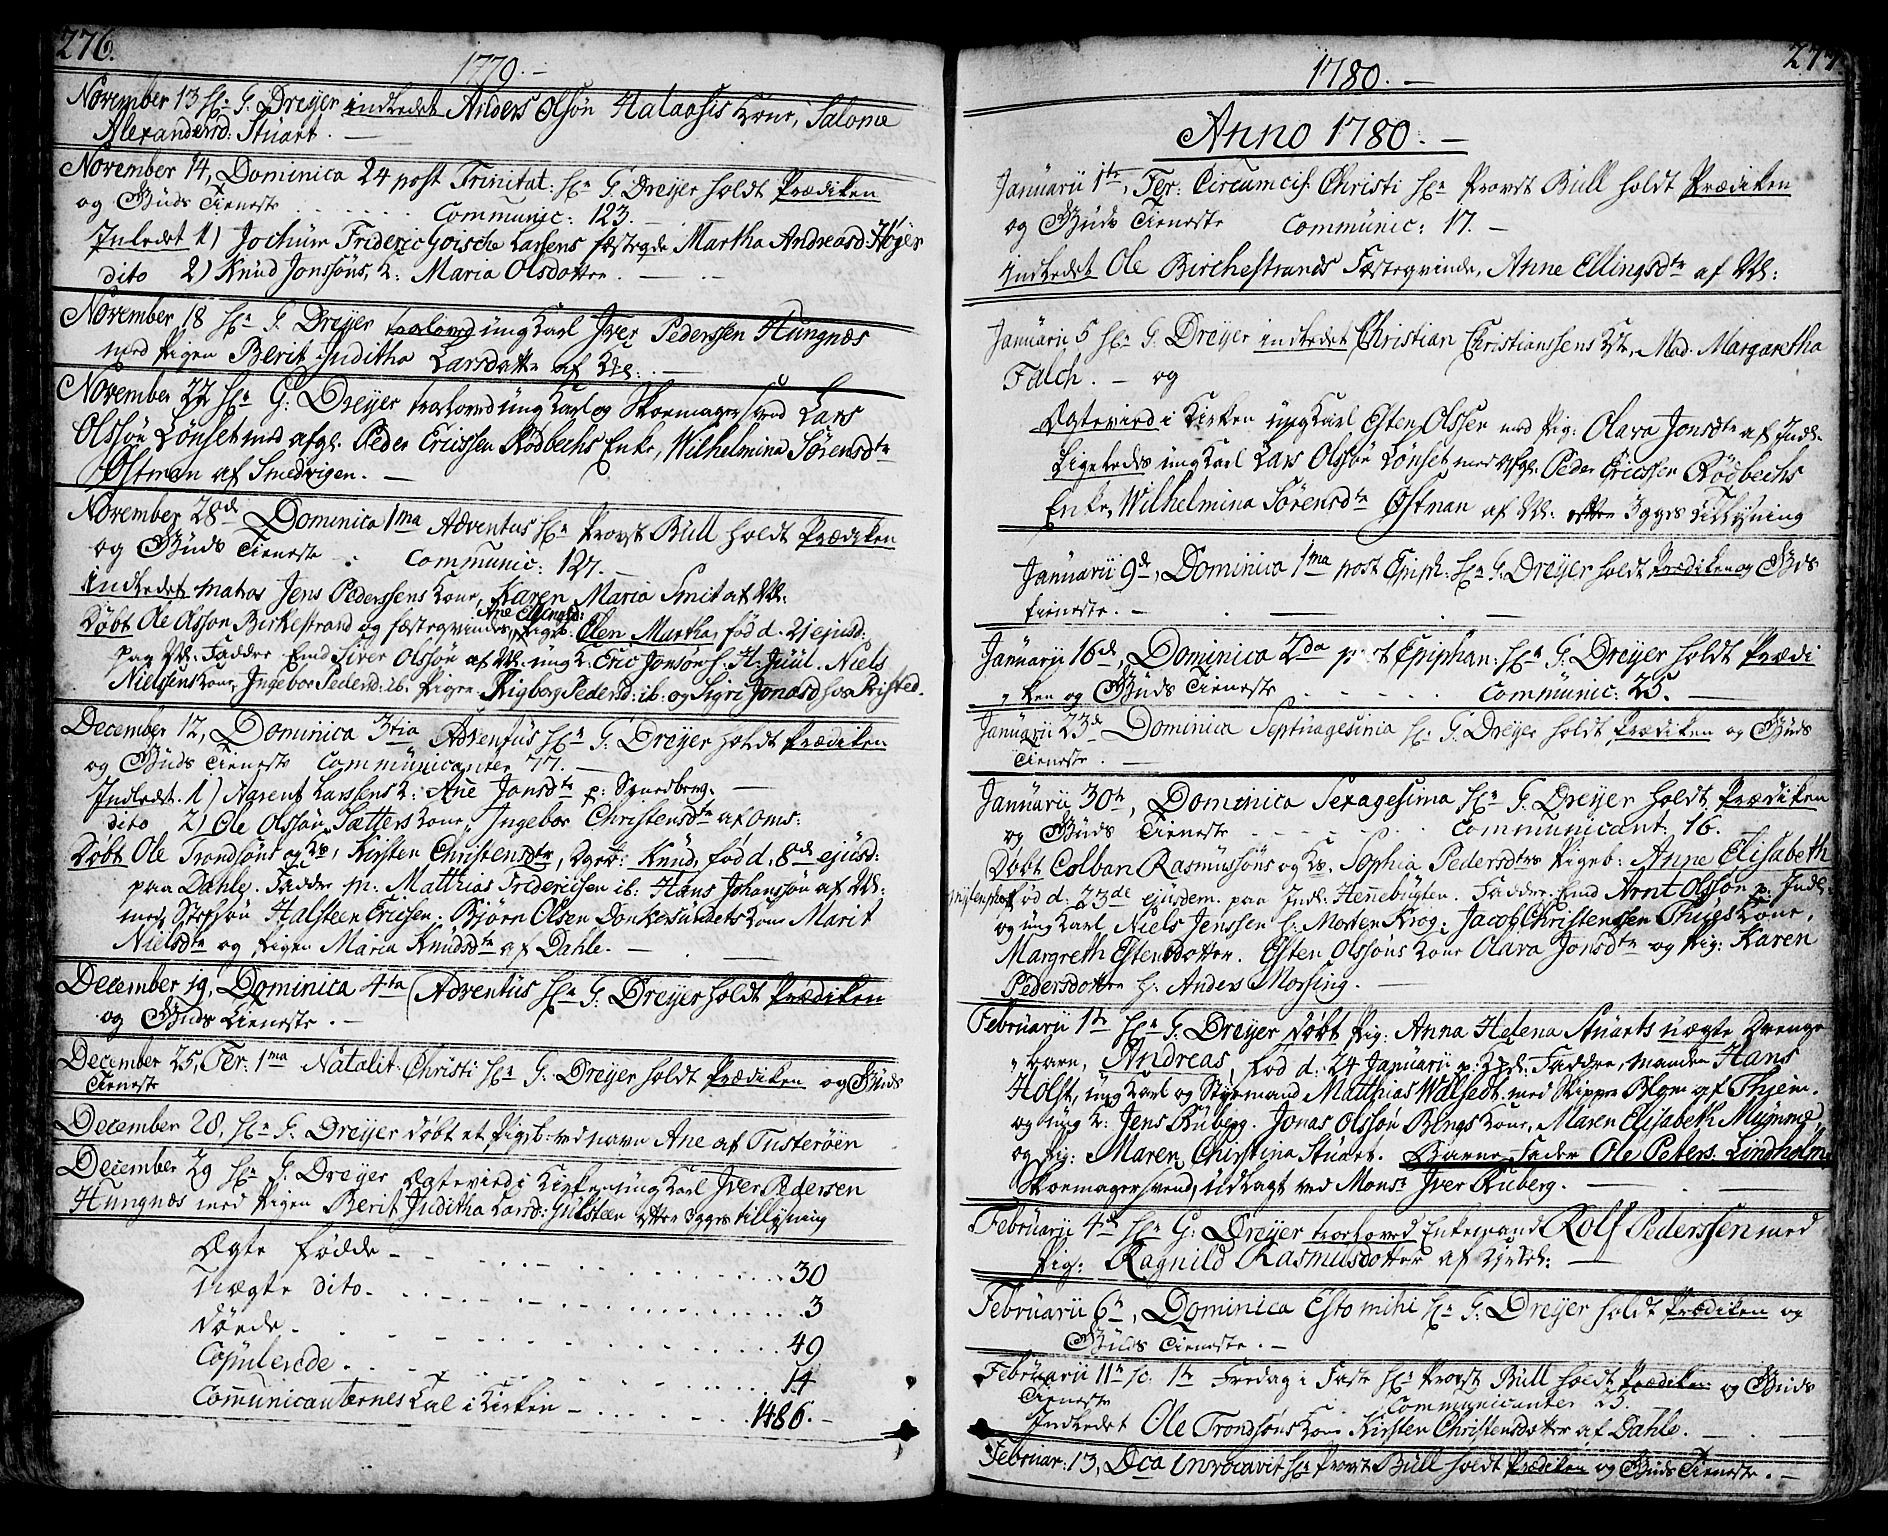 276.
1779.-
November 13 Hr: G: Dreyer indledet Anders Olsøn Hataases Kone, Salome
Alexandersd: Stuart. -
November 14, Dominica 24 post Trinitat: Hr: G: Dreyer holdt Prædiken
og Guds Tieneste . . . . . Communic: 123. -
Inledet 1) Jochum Frideric Goische Lassens fæstegde Martha Andreasd Høyer
dito 2) Knud Jonssøns, K: Maria Olsdotter. -
November 18 Hr: G: Dreyer trolovd ung Karl Iver Pederssen Hungnæs
med Pigen Berit Juditha Larsdotter af
November 22 Hr: G: Dreyer trolovd ung Karl og Skoemagersvend Lars
Olssøn Lønset med afgl: Peder Ericssen Rødbechs Enke, Wilhelmina Sørensdtr
Østman af Smedvigen. -
November 28de Dominica 1ma Adventus Hr: Provst Bull holdt Prædiken
og Guds Tieneste . Communic: 127. -
indledet matros Jens Pederssens Kone, Karen Maria Smit af
Døbt Ole Olsson Birkestrand og fæsteqvindes Ane Ellingsd: Pigeb: Elen Martha, fød d. 21 ejusd:
paa Fadder Emd Siver Olssøn af ung K: Eric Jonsøn H: Juul. Niels
Nielsens Kone, Ingebor Pedersd: ib. Pigen Rigborg Pedersd: ib: og Sigri Jonasd hos Prifted.
December 12, Dominica 3tia Adventus Hr: G: Dreyer holdt Prædiken
og Guds Tieneste Communicanter 77. -
Indledt. 1) Agrent Larssens K: Ane Jonsdtr p: Smedberg. -
dito 2) Ole Olssøn Sætters Kone, Ingebor Christensdtr af Oms:
Døbt Ole Trondsøns og Ks, Kirsten Christensdtr, Dgeb: Knud, fød d: 8de ejusd:
paa Dahle. Fadder M: Matthias Friderichsen ib: Hans Johanssøn af
med Stefsøn Halsteen Ericsen: Bjørn Olsen Donkesundets Kone Marit
Nielsdtr og Pigen Maria Knudsdtr af Dahle. -
December 19, Dominica 4ta Adventus Hr: G: Dreyer holdt Prædiken
og Guds Tieneste. -
December 25, Fer: 1ma Natalit: Christi Hr: G: Dreyer holdt Prædiken og Guds
Tieneste
December 28, Hr: G: Dreyer døbt et Pigeb: ved navn Ane af Tusterøen
December 29 Hr: G: Dreyer Ægtevied i Kirken ung Karl Iver Pedersen
Hungnæs med Pigen Berit Juditha Larsd: Gulsteen efter 3ggrs tillysning
Ægte fødde - . . . . 30
Uægte dito - . . . . 3
Døede - . . . . 49
Copulerede . . . . 14
Communicanternes Tal i Kirken - . . . . 1486. -
277
1780. -
Anno 1780. -
Januarii 1te, Fer: Circumcis: Christi Hr: Provst Bull holdt Prædiken
og Guds Tieneste Communic: 17. -
indledet Ole Birchestrands Fæsteqvinde, Anne Ellingsdtr af
Januarii 5 Hr: G: Dreyer indledet Christian Christianssens Kst, Mad. Margaretha
Falch. - og
Ægtevied i Kirken ung Karl Esten Olssen med Pig: Olava Jonsdtr af Indl.
Ligeledes ung Karl Lars Olssøn Lønset med Afgl: Peder Ericssen Rødbechs
Enke, Wilhelmina Sørensdtr Østman af efter 3ggrs Tillysning
Januarii 9de, Dominica 1ma post Epiph: Hr: G: Dreyer holdt Prædiken og Guds
tieneste. -
Januarii 16de, Dominica 2da post Epiphan: Hr: G: Dreyer holdt Prædi
ken og Guds Tieneste . . . . . Communic: 25. -
Januarii 23de Dominica Septuagesinia Hr: G: Dreyer holdt Prædiken og Guds
Tieneste. -
Januarii 30te, Dominica Sexagesima Hr: G: Dreyer holdt Prædiken
og Guds Tieneste - - - - - Communicant: 16.
Døbt Colban Rasmussøns og Ks. Sophia Pedersdtrs Pigeb: Anne Elisabeth
fød d: 23de ejusdem paa Indl: Henebugten. Fadder Emd Arnt Olssøn p: Indl:
og ung Karl Niels Jenssen h: Morten Krog: Jacob Christenssen Thues Kone,
Margreth Estensdotter. Esten Olssøns Kone Olava Jonsdtr og Pig: Karen
Pedersdotter h: Anders Morsing. -
Februarii 1te Hr: G: Dreyer døbt Pig: Anna Helena Stuarts uægte Drenge
barn, Andreas, fød d: 24 Januarii p: Fadder, manden Hans
Holst, ung Karl og Styrmand Matthias Walsedt. med Skipper Blom af Thiem.
og ung K: Jens Ruberg. Jonas Olssøn Bergs Kone, Maren Elisabeth Mumme,
og Pig: Maren Christina Stuart. Barne Fader Ole Peters. Lindholm
Skoemagersvend, Udlagt ved Monsr Iver Ruberg. -
Februarii 4de Hr: G: Dreyer trolovd Enkemand Rolf Pederssen med
Pig: Ragnild Rasmusdotter af
Februarii 6te, Dominica Estomihi Hr: G: Dreyer holdt Prædiken og
Guds Tieneste. -
Februarii 11te sc: 1te Fredag i Faste Hr: Provst Bull holdt Prædiken og Guds
Tieneste Communicanter 25.
Indledet Ole Trondsøns Kone Kirsten Christensdotter af Dahle. -
Februar: 13, Dca Invocavit Hr: Provst Bull holdt Prædiken og Guds Tieneste. -